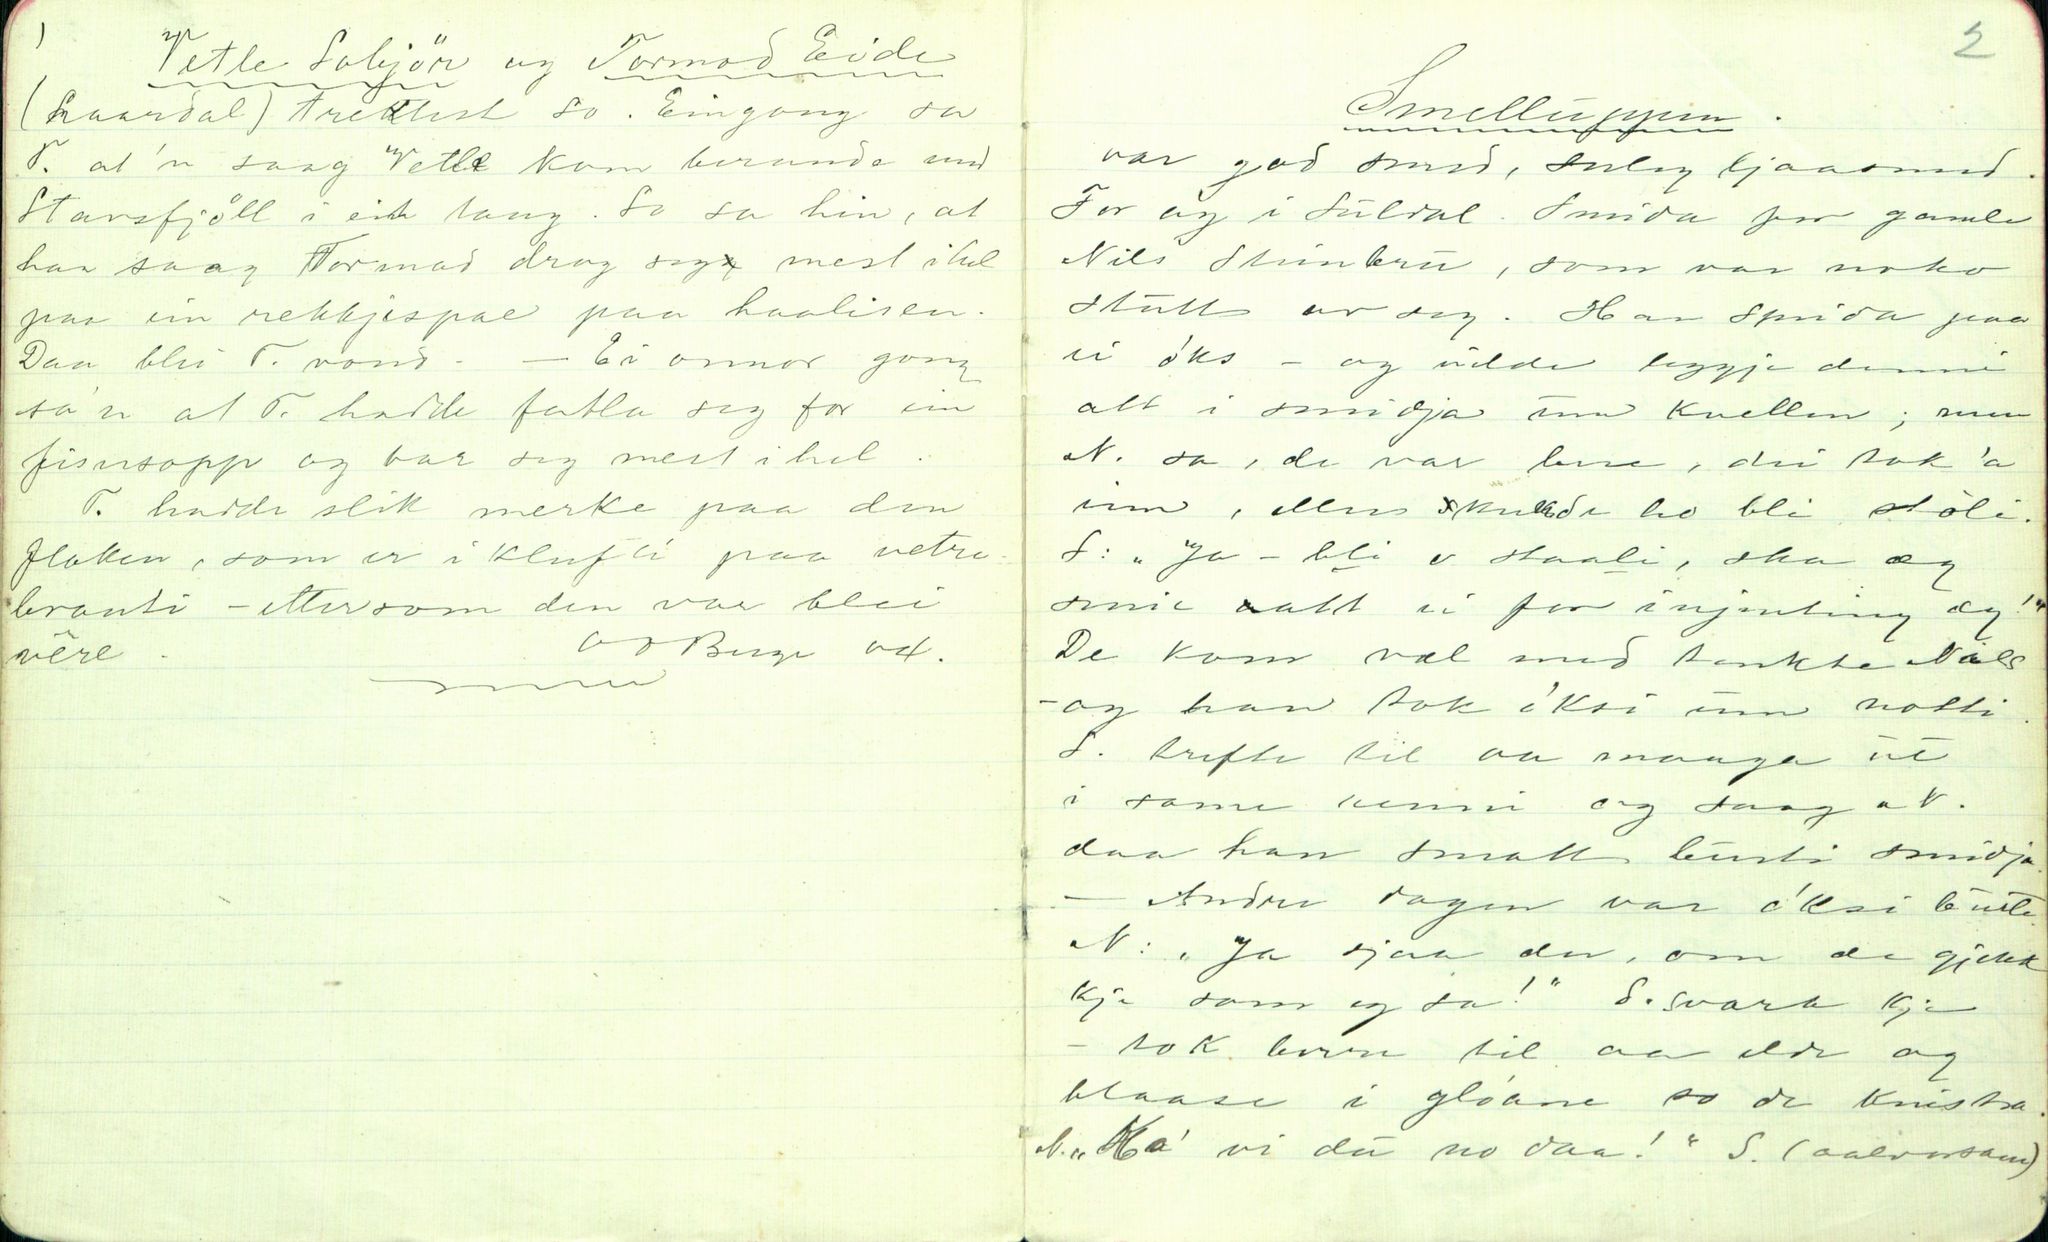 1
Vetle Lobjör og Tormod Eide
(Laardal) trettest so. Eingong sa
T. at 'n saag Vetle kom berande med
Stavsfjöll i ei taug. So sa hin, at
han saag Tormod drog seg mest ihel
paa ein rekkjespae paa haalisen.
Daa blei T. vond. — Ei onnor gong
sa'n at T. hadde fatla seg for ein
fisesopp og bar seg mest ihel.
T. hadde slik merke paa den
flaken, som er i klufti paa vetre
branti – ettersom den var blei
vêre.
O O Berge
2
Smelluppen.
var god smed, ljaasmed.
For og i Suldal. Smida for gamle
Nils Steinbru, som var noko
stutt av seg. Han smida paa
ei óks – og vilde leggje denne
att i smidja um kvellen; men
N. sa, de var bere, dei tok 'a
inn, elles skulde ho bli stöli.
S: "Ja – bli o staali, ska eg
smie att ei for injenting eg!"
De kom vel med tenkte Nils
– og han tok óksi inn notti.
S. trefte til aa maaga ut
i same og saag N.
daa han smatt burti smidja.
— Andre dagen var óksi burte.
N: "Ja sjaa du, om de gjekk
kje som eg sa!" S. svara kje
– tok berre til aa elde og
blaase i glóane so de knistra.
N. "Ka' vi du no daa!" S. (aalvorsam)